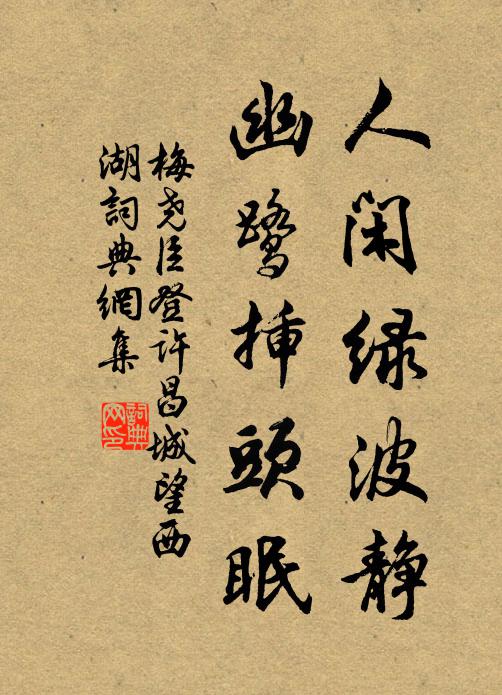 人闲绿波静
幽鹭插頭眠
梅尧臣登許昌城望西
湖詞典網集
詞典网印